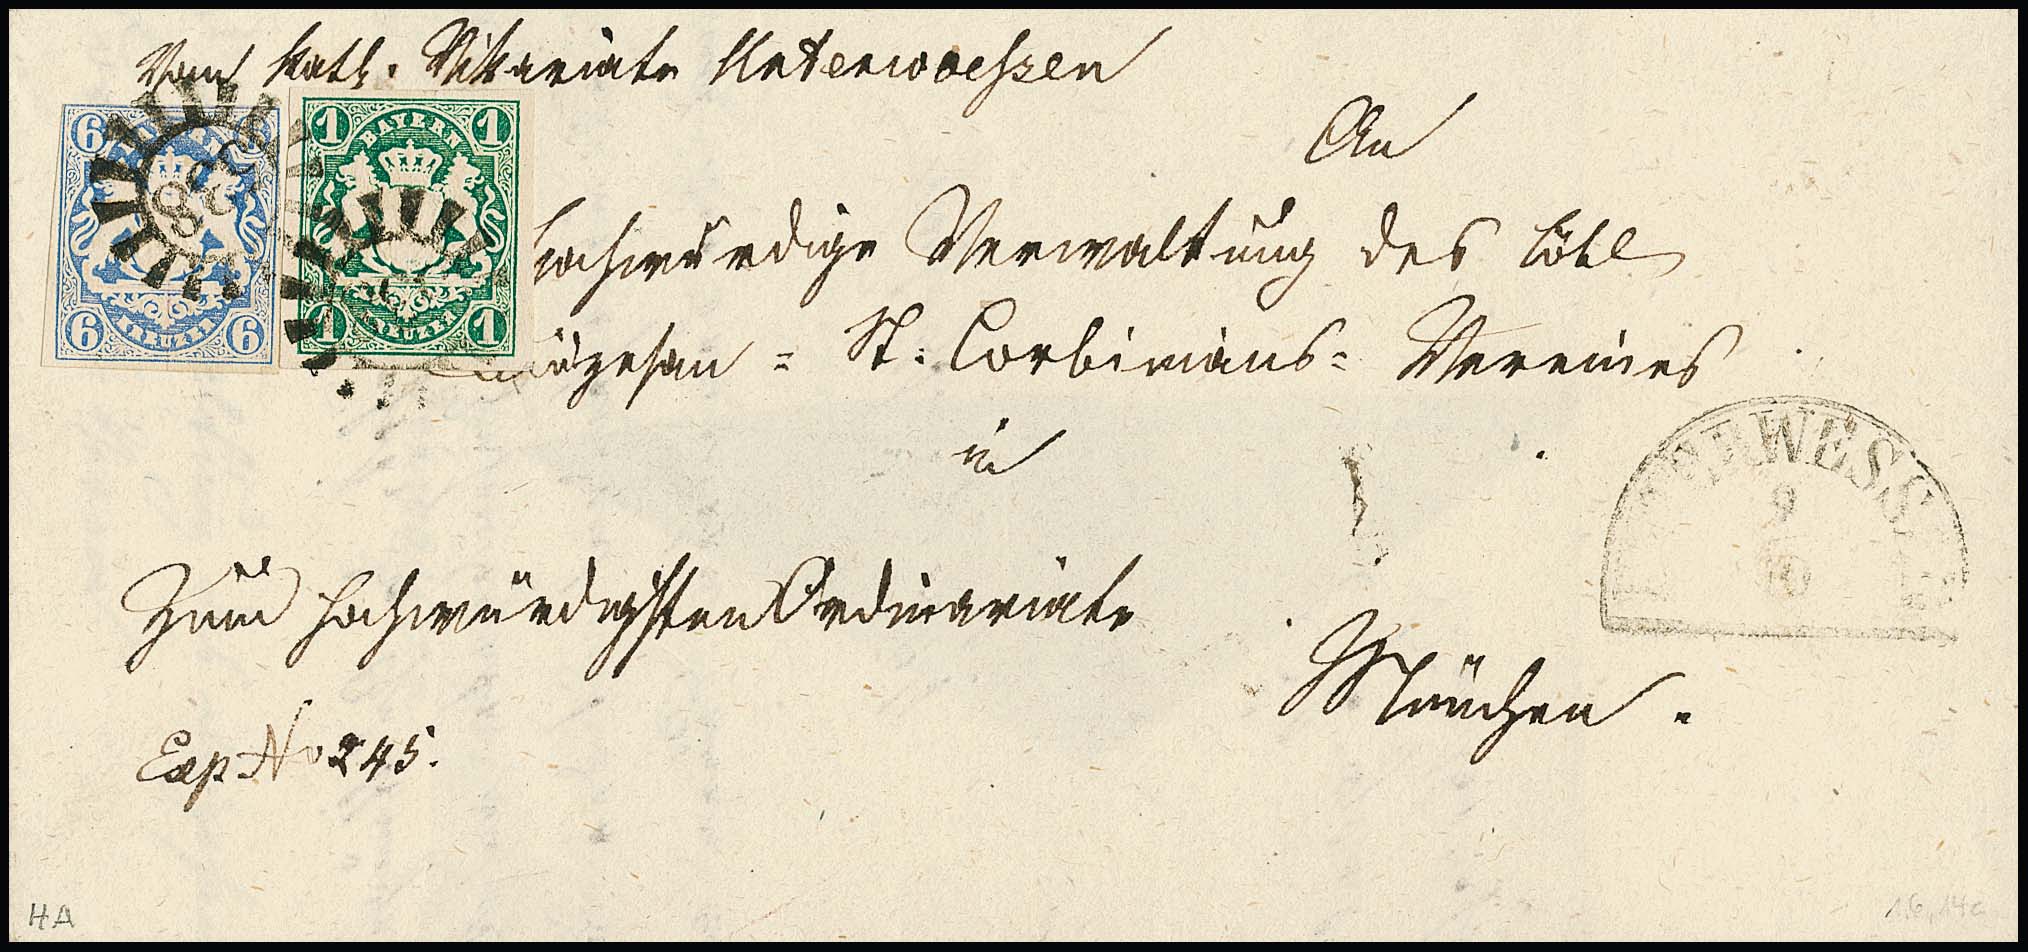 Vom kath. Vikariate Unterwoessen
6 6
BAYERN
6 6
KREUZER
1 1
BAYERN
1 1
KREUZER
An
hochwürdige Verwaltung des löbl
Diözesan = St: Corbinians = Vereines
in
Zum hochwürdigsten Ordinariate
München.
Exp No 245.
9
10
HA
16, 14a